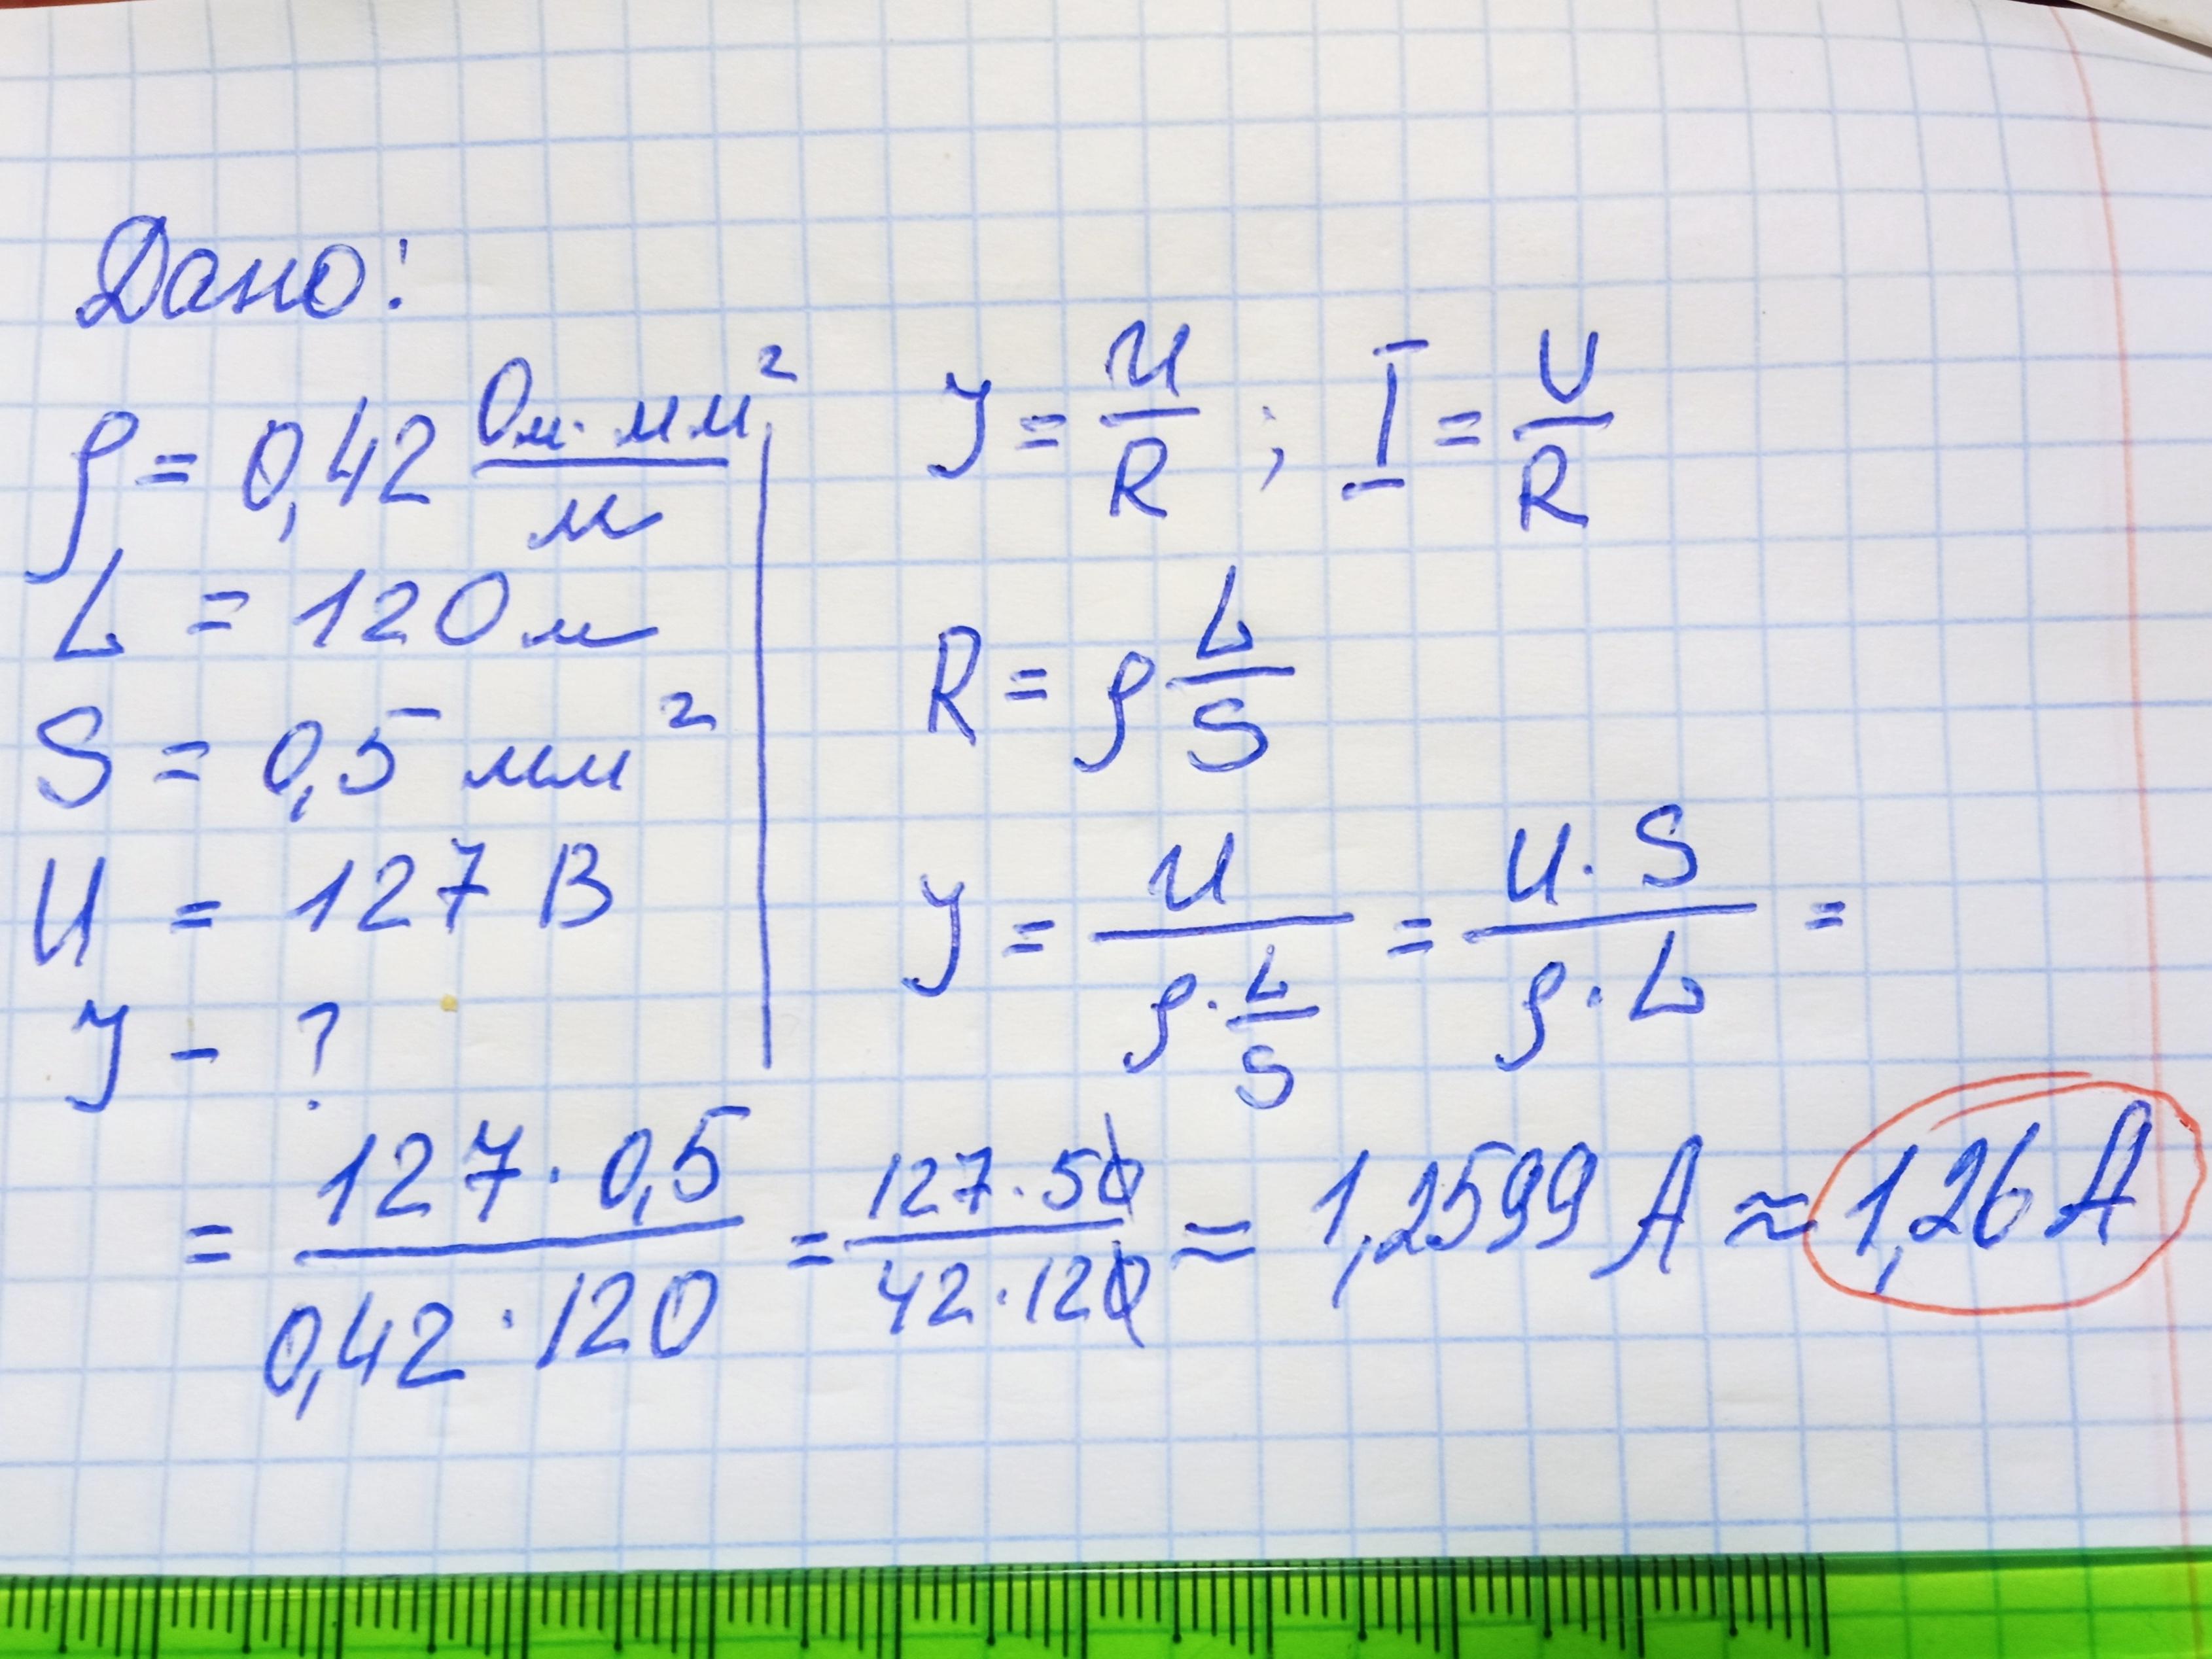 Дано:
ρ = 0,42 Ом·мм²/м
L = 120 м
S = 0,5 мм²
U = 127 В
J - ?
J = U/R ; I = U/R
R = ρ L/S
J = U/(ρ · L/S) = U · S/(ρ · L) =
= 127 · 0,5/(0,42 · 120) = 127 · 50/(42 · 120) ≈ 1,2599 А ≈ 1,26 А